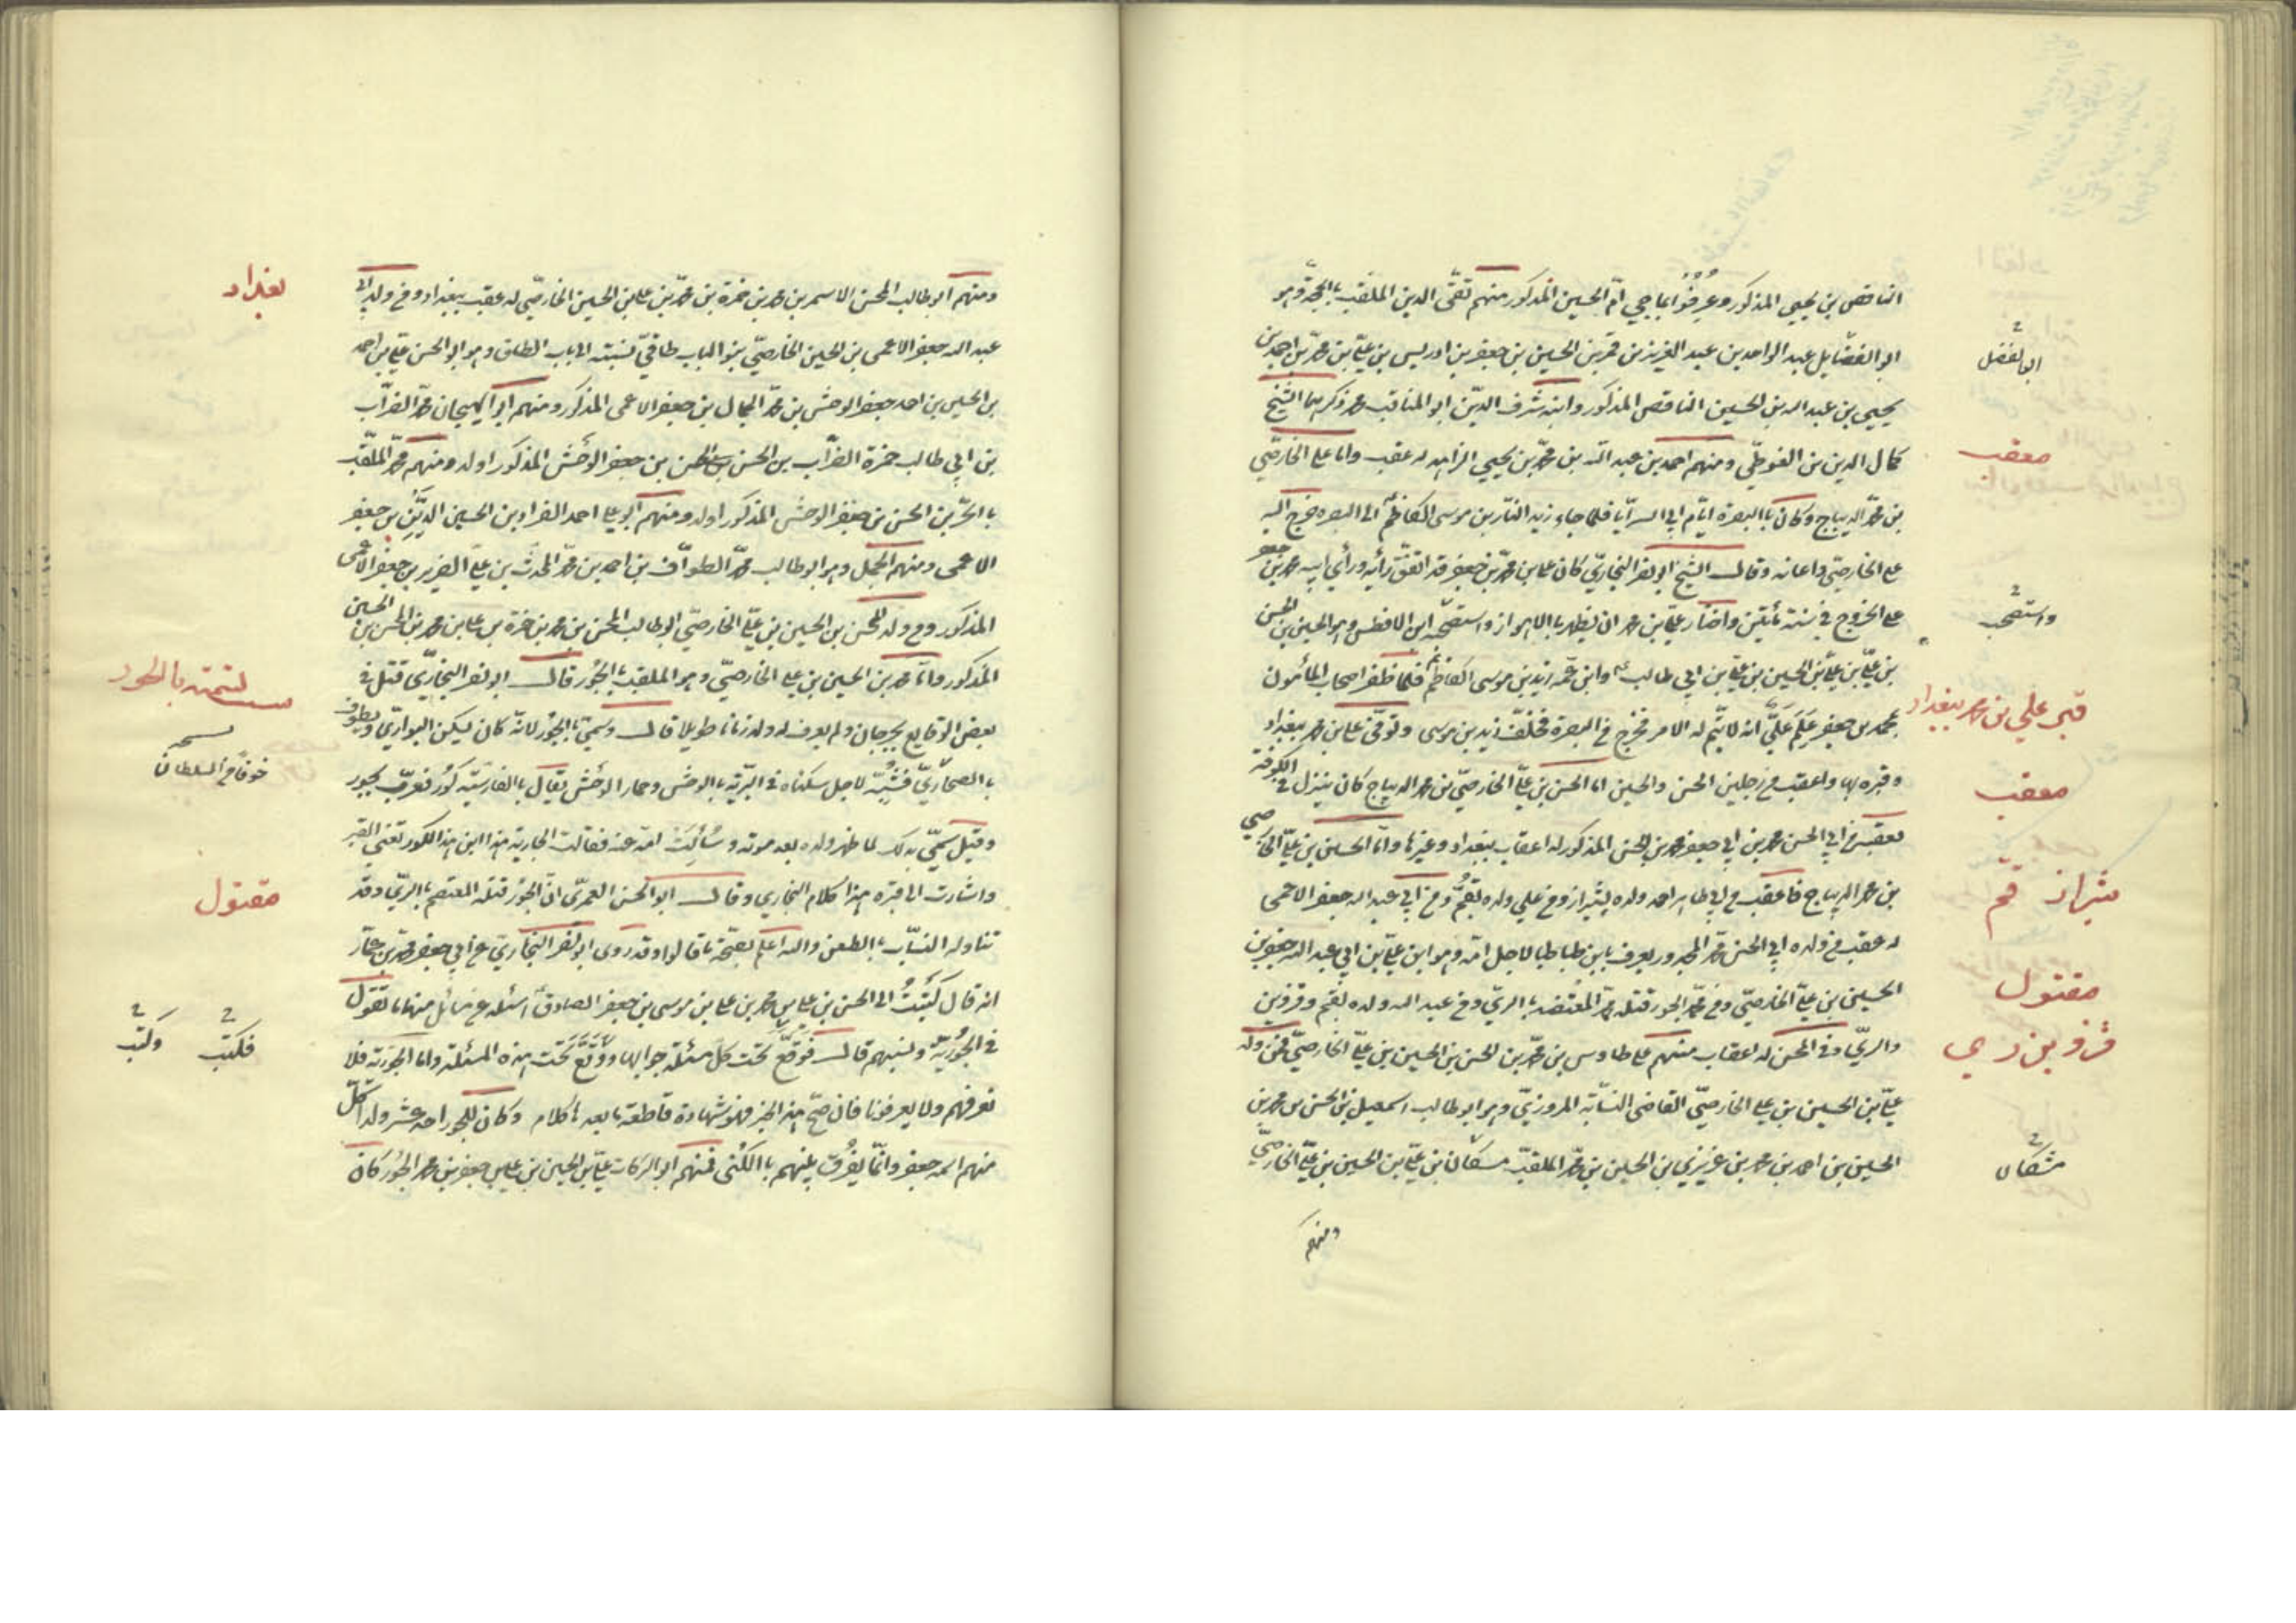 الناقص بن يحيى المذكور وعرفوا بباجي ام الحسين المذكور منهم تقي الدين الملقب بالمجد وهو
ابو الفضايل عبد الواحد بن عبد العزيز بن قمر بن الحسين بن جعفر بن ادريس بن علي بن محمد بن احمد بن
ابو الفضل
يحيى بن عبد الله بن الحسين الناقص المذكور وابنه شرف الدين ابو المناقب محمد ذكرهما الشيخ
كمال الدين بن الفوطي ومنهم احمد بن عبد الله بن محمد بن يحيى الزاهد له عقب واما علي الخارصي
معقب
بن محمد الديباج وكان بالبصرة ايام ابي السرايا فلما جاء زيد النار بن موسى الكاظم الى البصره خرج اليه
علي الخارصي واعانه وقال الشيخ ابو نصر البخاري كان علي بن محمد بن جعفر قد اتفق رأيه ورأي ابيه محمد بن جعفر
على الخروج في سنة مئتين واختار علي بن محمد ان يظهر بالاهواز واستصحبه ابن الافطس وهو الحسين بن الحسن
واستصحب
بن علي بن علي بن الحسين بن علي بن ابي طالب وابن عمه زيد بن موسى الكاظم فلما ظفر اصحاب المأمون
بمحمد بن جعفر علم علي انه لا يتم له الامر فخرج من البصرة فخلف زيد بن موسى وتوفى علي بن محمد ببغداد
قبر علي بن محمد ببغداد
وقبره بها واعقب من رجلين الحسن والحسين اما الحسن بن علي الخارصي بن محمد الديباج كان ينزل في الكوفة
معقب
يعقب من ابي الحسن محمد بن ابي جعفر محمد بن الحسن المذكور له اعقاب ببغداد وغيرها واما الحسين بن علي الخارصي
بن محمد الديباج فاعقب من ابي طاهر احمد ولده بشيراز ومن علي ولده بقم ومن ابي عبد الله جعفر الاعمى
شيراز قم
له عقب من ولده ابي الحسن محمد المجدور يعرف بابن طباطبا لاجل امه وهو ابن علي بن ابي عبد الله جعفر بن
الحسين بن علي الخارصي ومن محمد الجور قتله محمد المعتضد بالري ومن عبيد الله ولده بقم وقزوين
مقتول
والري وفي المحسن له اعقاب منهم علي طاوس بن محمد بن الحسن بن الحسين بن علي الخارصي فمن ولد
قزوين ري
علي بن الحسين بن علي الخارصي القاضي النسابة المروزي وهو ابو طالب اسمعيل بن الحسن بن محمد بن
الحسين بن احمد بن محمد بن عزيزي بن الحسين بن محمد الملقب مسكان بن علي بن الحسين بن علي الخارصي
مشكان
ومنهم
ومنهم ابو طالب المحسن الاسمر بن محمد بن حمزة بن محمد بن علي بن الحسين الخارصي له عقب ببغداد ومن ولد ابي
بغداد
عبد الله جعفر الاعمى بن الحسين الخارصي بنو الباب طاقي نسبته الى باب الطاق وهو ابو الحسن علي بن احمد
بن الحسين بن احمد جعفر الوحش بن محمد الجمال بن جعفر الاعمى المذكور ومنهم ابو الهيجان محمد الضراب
بن ابي طالب حمزة الضراب بن الحسن بن جعفر الوحش المذكور اولد ومنهم محمد الملقب
بالحر بن الحسن بن جعفر الوحش المذكور اولد ومنهم ابو علي احمد الفراد بن الحسين الدين بن جعفر
الاعمى ومنهم الجمل وهو ابو طالب محمد الطواف بن احمد بن محمد المحدث بن علي الضرير بن جعفر الاعمى
المذكور ومن ولد المحسن بن الحسين بن علي الخارصي ابو طالب المحسن بن محمد بن حمزة بن علي بن محمد بن المحسن بن الحسين
المذكور واما محمد بن الحسين بن علي الخارصي وهو الملقب بالجور قال ابو نصر البخاري قتل في
سبب تسميته بالجور
بعض الوقايع بجرجان ولم يعرف له ولد زمانا طويلا قال وسمي بالجور لانه كان يسكن البراري ويطوف
خوفا من السلطان
بالصحاري فشبه لاجل سكناه في البرية بالوحش وحمار الوحش يقال بالفارسية كور فعرب بجور
وقيل سمي بذلك لما ظهر ولده بعد موته وسألت امه عنه فقالت الجارية هذا ابن هذا الكور تعني القبر
واشارت الى قبره هذا كلام البخاري وقال ابو الحسن العمري ان الجور قتله المعتصم بالري وقد
مقتول
تناوله النساب بالطعن والله اعلم بصحة ما قالوا وقد روى ابو نصر البخاري عن ابي جعفر محمد بن عمار
انه قال كتبت الى الحسن بن علي بن محمد بن علي بن موسى بن جعفر الصادق اسئله عن مسائل منها ما تقول
في الجورية ونسبهم قال فوقع تحت كل مسئلة جوابها ووقع تحت هذه المسئلة واما الجورية فلا
فكتب
وكتب
نعرفهم ولا يعرفونا فان صح هذا الخبر فهو شهادة قاطعة ما بعدها كلام وكان للجور احد عشر ولدا كل
منهم اسمه جعفر وانما يفرق بينهم بالكنى فمنهم ابو البركات علي بن الحسين بن علي بن جعفر بن محمد الجور كان